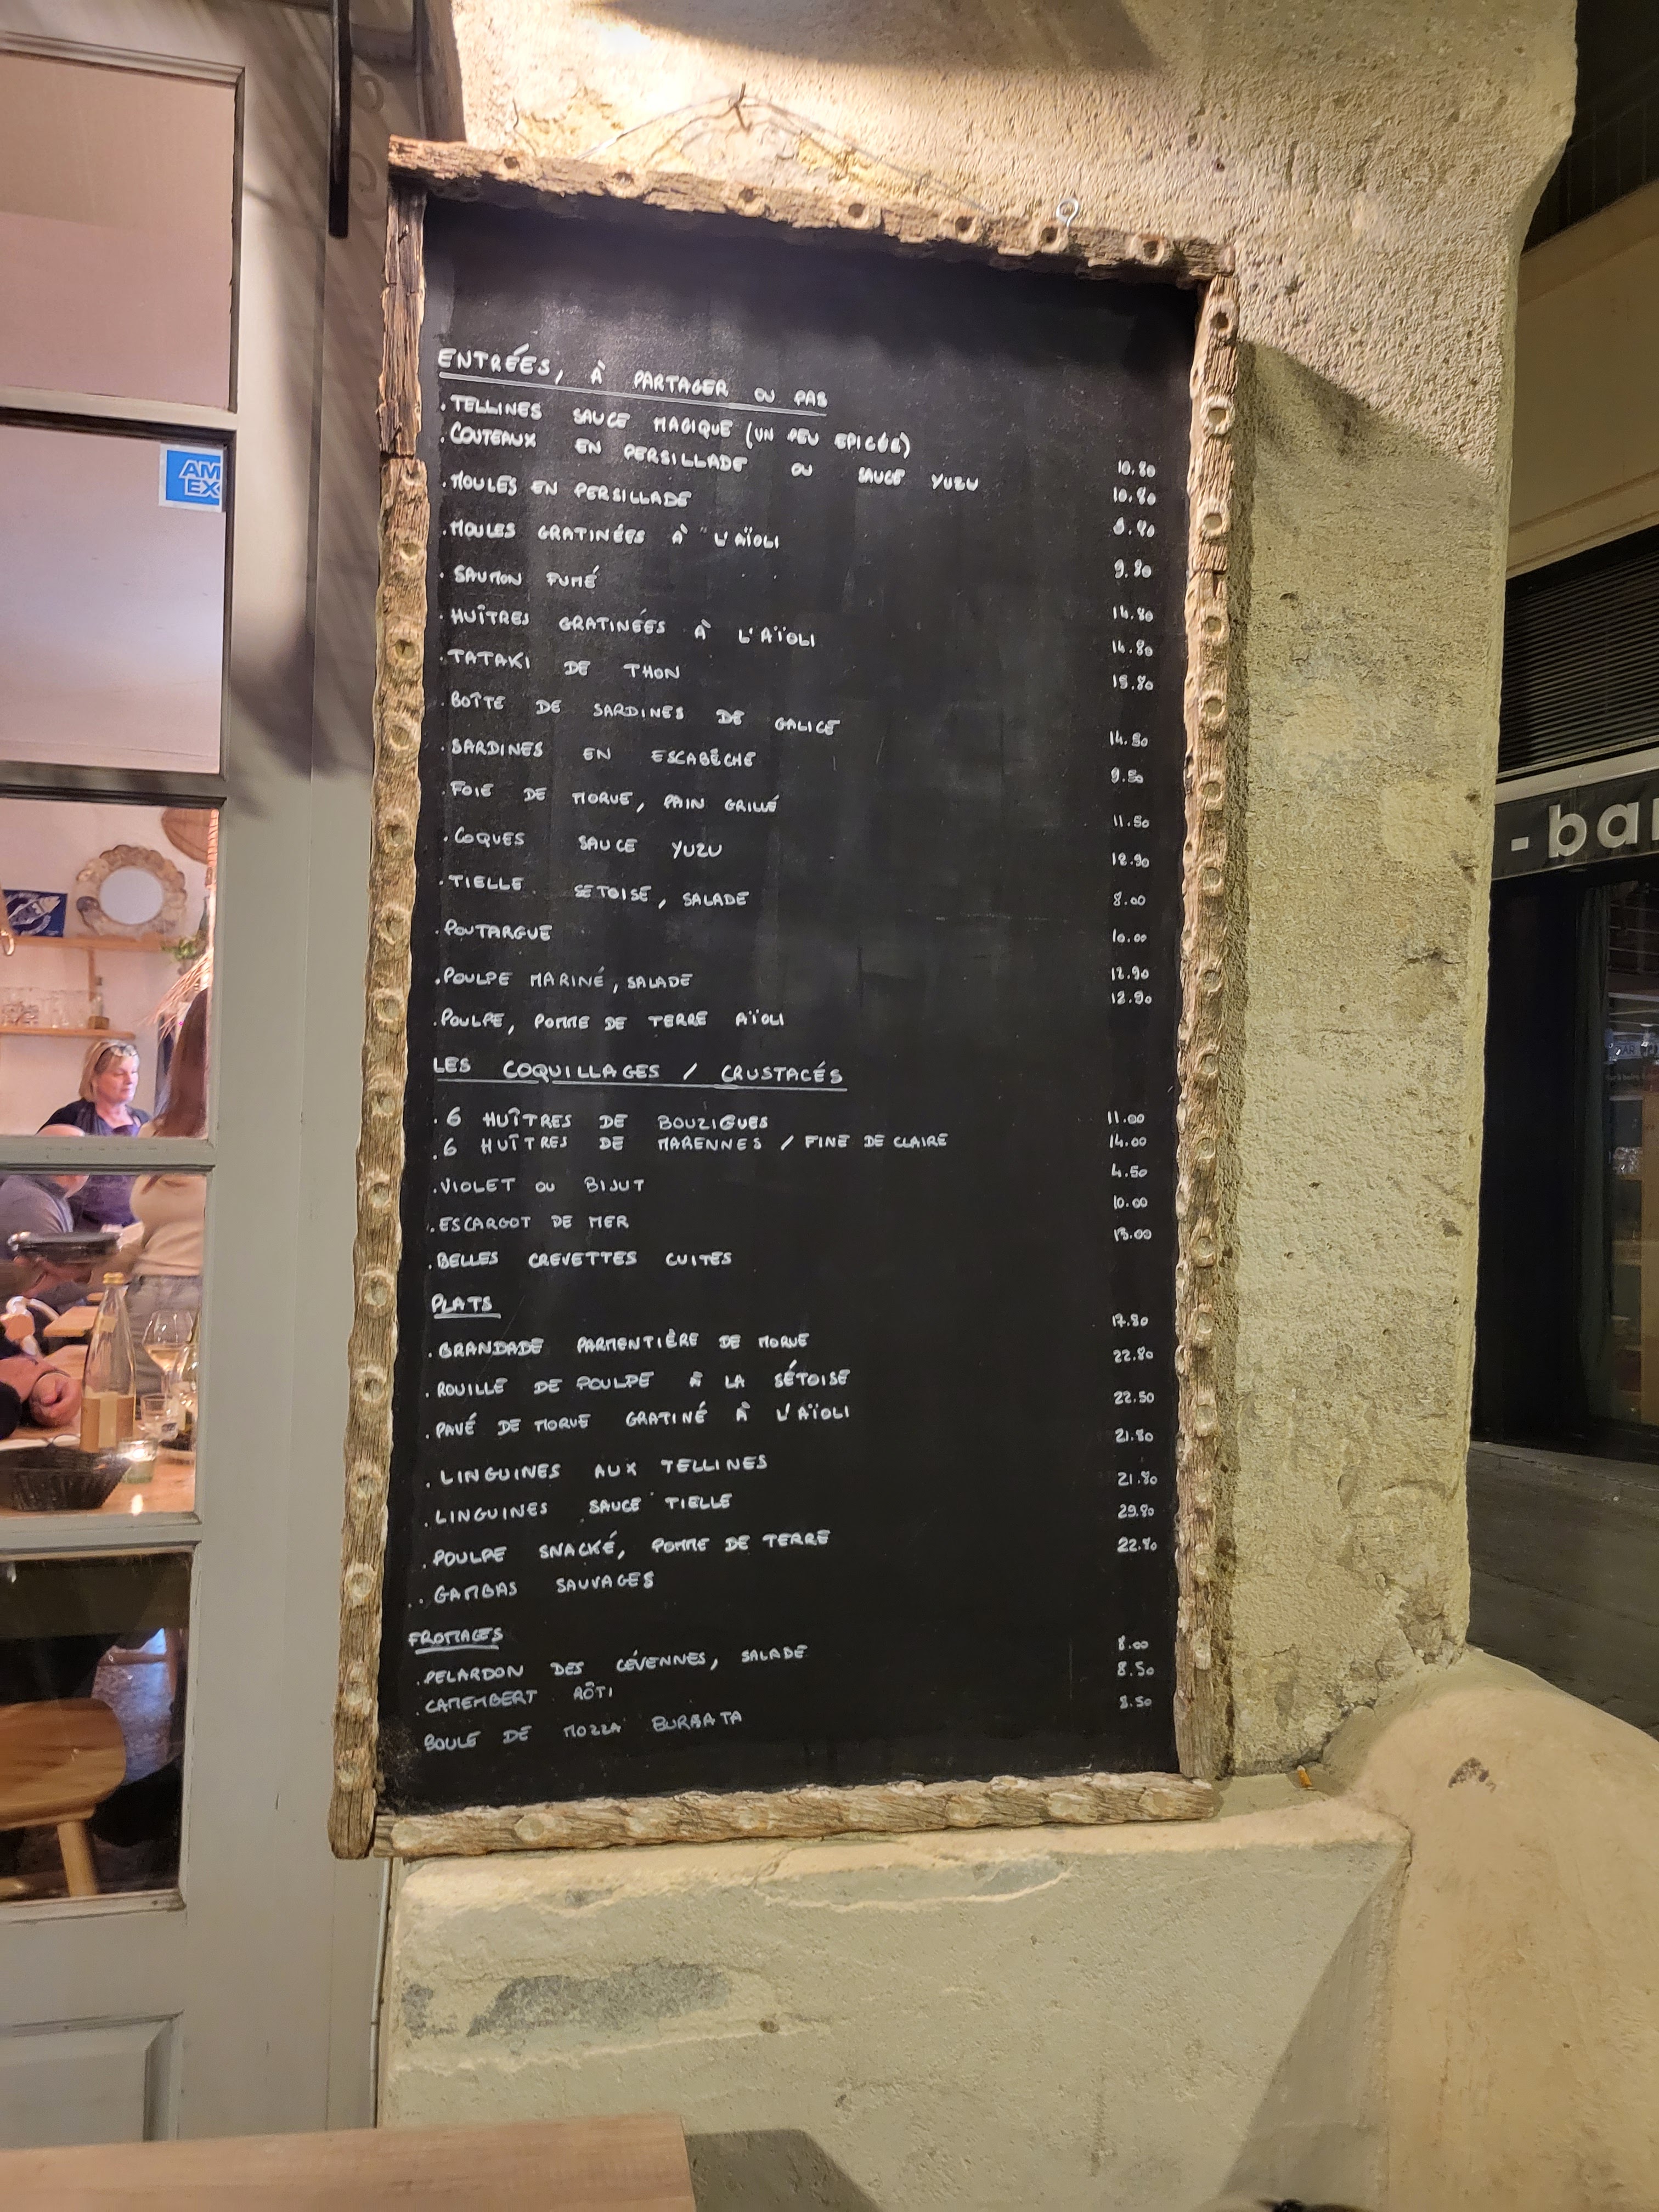 ENTRÉES, À PARTAGER OU PAS
. TELLINES SAUCE MAGIQUE (UN PEU EPICÉE) 10.80
. COUTEAUX EN PERSILLADE OU SAUCE YUZU 10.80
. MOULES EN PERSILLADE
. MOULES GRATINÉES À L'AÏOLI 9.80
. SAUMON FUMÉ 14.80
. HUÎTRES GRATINÉES À L'AÏOLI 14.80
. TATAKI DE THON 15.80
. BOÎTE DE SARDINES DE GALICE 14.50
. SARDINES EN ESCABÈCHE 9.50
. FOIE DE MORUE, PAIN GRILLÉ 11.50
. COQUES SAUCE YUZU 12.90
. TIELLE SETOISE, SALADE 8.00
. POUTARGUE 10.00
. POULPE MARINÉ, SALADE 12.90
. POULPE, POMME DE TERRE AÏOLI 12.90
LES COQUILLAGES / CRUSTACÉS
. 6 HUÎTRES DE BOUZIGUES 11.00
. 6 HUÎTRES DE MARENNES / FINE DE CLAIRE 14.00
. VIOLET OU BIJUT 4.50
. ESCARGOT DE MER 10.00
. BELLES CREVETTES CUITES 13.00
PLATS
. BRANDADE PARMENTIÈRE DE MORUE 17.80
. ROUILLE DE POULPE À LA SÉTOISE 22.80
. PAVÉ DE MORUE GRATINÉ À L'AÏOLI 22.50
. LINGUINES AUX TELLINES 21.80
. LINGUINES SAUCE TIELLE 21.80
. POULPE SNACKÉ, POMME DE TERRE 29.80
.. GAMBAS SAUVAGES 22.80
FROMAGES
. PELARDON DES CÉVENNES, SALADE 8.00
. CAMEMBERT RÔTI 8.50
BOULE DE MOZZA BURRATA 8.50
AM
EX
- bar